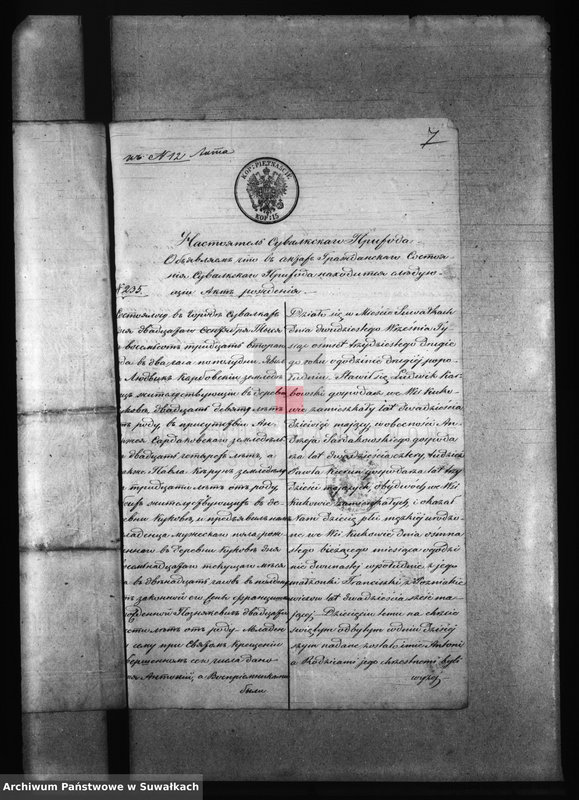 7
къ № 12 Акта
KOP: PIETNAŚCIE
КОП: 15
Настоятель Сувалкскаго Прихода
Объявляем что въ актах Гражданскаго Состоя-
ния Сувалкскаго Прихода находится следую-
щий Актъ рождения
№ 235.
Состоялось въ городе Сувалках
дня двадцатаго Сентября Тысяча
восемьсотъ тридцать втораго
года въ два часа пополудни. Явился
Людвикъ Карбовский
жительствующий въ деревни
двадцать девять летъ
отъ роду, въ присутствии Ан-
Сардаковскаго
двадцать четыре летъ, а
также Павла
тридцати летъ отъ роду
жительствующихъ въ де-
ревни Кукове, и предъявилъ намъ
младенца мужескаго пола рож-
деннаго въ деревни Куковъ дня
текущаго месяца
въ двенадцать часовъ въ полдень
отъ законной его жены Францишки
урожденной двадцать
летъ отъ роду. Младен-
цу сему при Святомъ Крещении
совершенномъ сего числа дано
имя Антоний, а Восприемниками
были
Działo się w Mieście Suwałkach
dnia dwudziestego Września Ty-
siąc ośmset trzydziestego drugie-
go roku o godzinie drugiej popo-
łudniu. Stawił się Ludwik Kar-
bowski gospodarz we Wsi Kuko-
wie zamieszkały lat dwadzieścia
dziewięć mający, w obecności An-
drzeja Sardakowskiego gospoda-
rza lat dwadzieścia cztery, tudzież
Pawła gospodarza lat trzy-
dzieści mających, obydwóch we Wsi
Kukowie zamieszkałych i okazał
Nam dziecię płci męzkiej urodzo-
ne we Wsi Kukowie dnia osmna-
stego bieżącego miesiąca o godzi-
nie dwunastej w południe z jego
małżonki Franciszki z Pozniakie-
wiczów lat dwadzieścia sześć ma-
jącej. Dziecięciu temu na chrzcie
świętym odbytym w dniu dzisiej-
szym nadane zostało imie Antoni
a Rodzicami jego chrzestnemi byli
wyżej
Archiwum Państwowe w Suwałkach